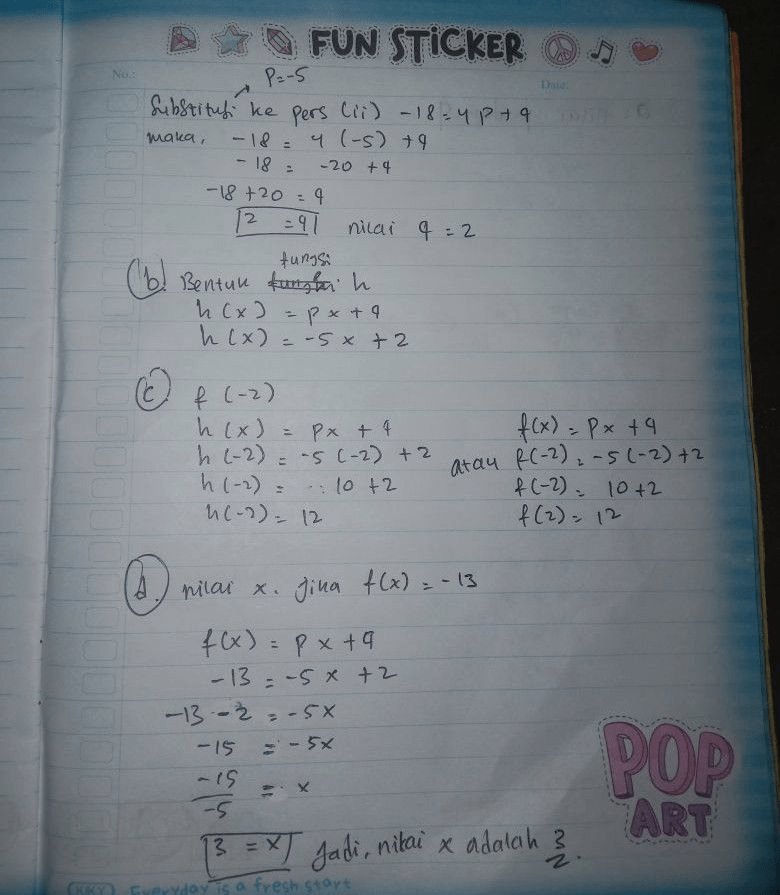 FUN STICKER
No.:
Date:
P = -5
Substitusi ke pers (ii) -18 = 4p + q
maka, -18 = 4 (-5) + q
-18 = -20 + q
-18 + 20 = q
2 = q nilai q = 2
fungsi
(b) Bentuk h
h(x) = px + q
h(x) = -5x + 2
(c) f (-2)
h(x) = px + q
h(-2) = -5 (-2) + 2
h(-2) = 10 + 2
h(-2) = 12
atau
f(x) = px + q
f(-2) = -5(-2) + 2
f(-2) = 10 + 2
f(2) = 12
(d) nilai x. Jika f(x) = -13
f(x) = px + q
-13 = -5x + 2
-13 - 2 = -5x
-15 = -5x
-15/-5 = x
3 = x Jadi, nilai x adalah 3
POP
ART
KKY Everyday is a fresh start